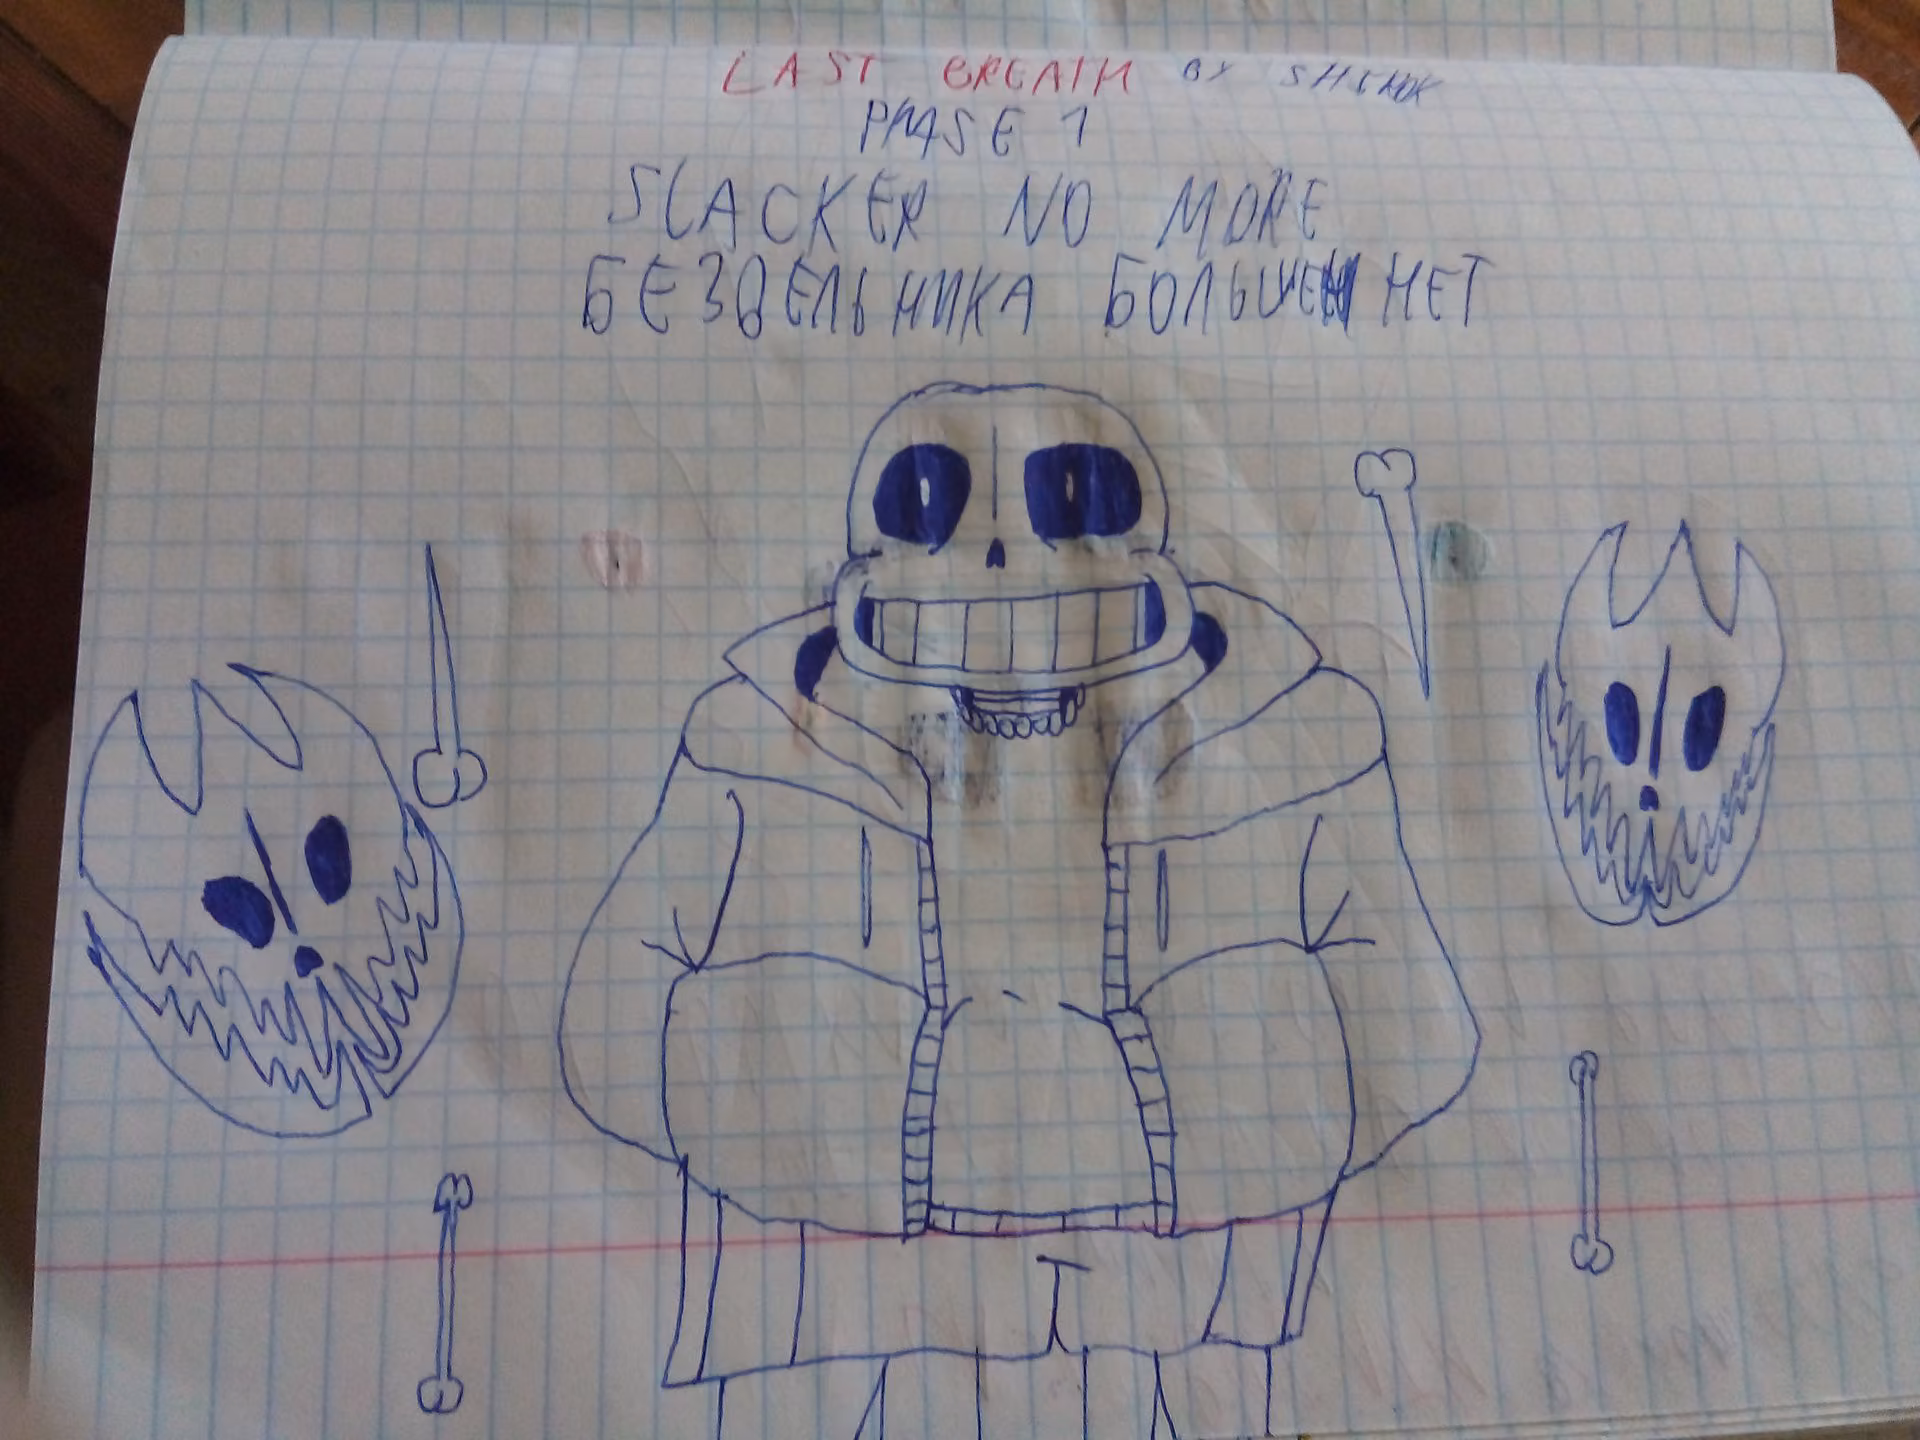 LAST BREATH BY SHENOK
PHASE 1
SLACKER NO MORE
БЕЗДЕЛЬНИКА БОЛЬШЕ НЕТ